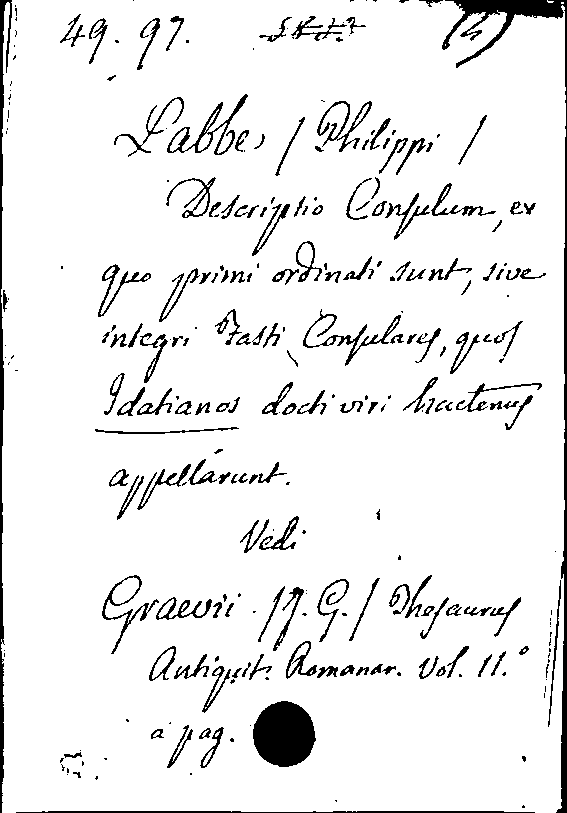 49. 97. (5)
Labbe, / Philippi /
Descriptio Consulum, ex
quo primi ordinati sunt, sive
integri Fasti Consulares, quos
Idatianos docti viri hactenus
appellarunt.
Vedi
Graevii. /J. G./ Thesaurus
Antiquit: Romanar. Vol. 11.°
a pag.